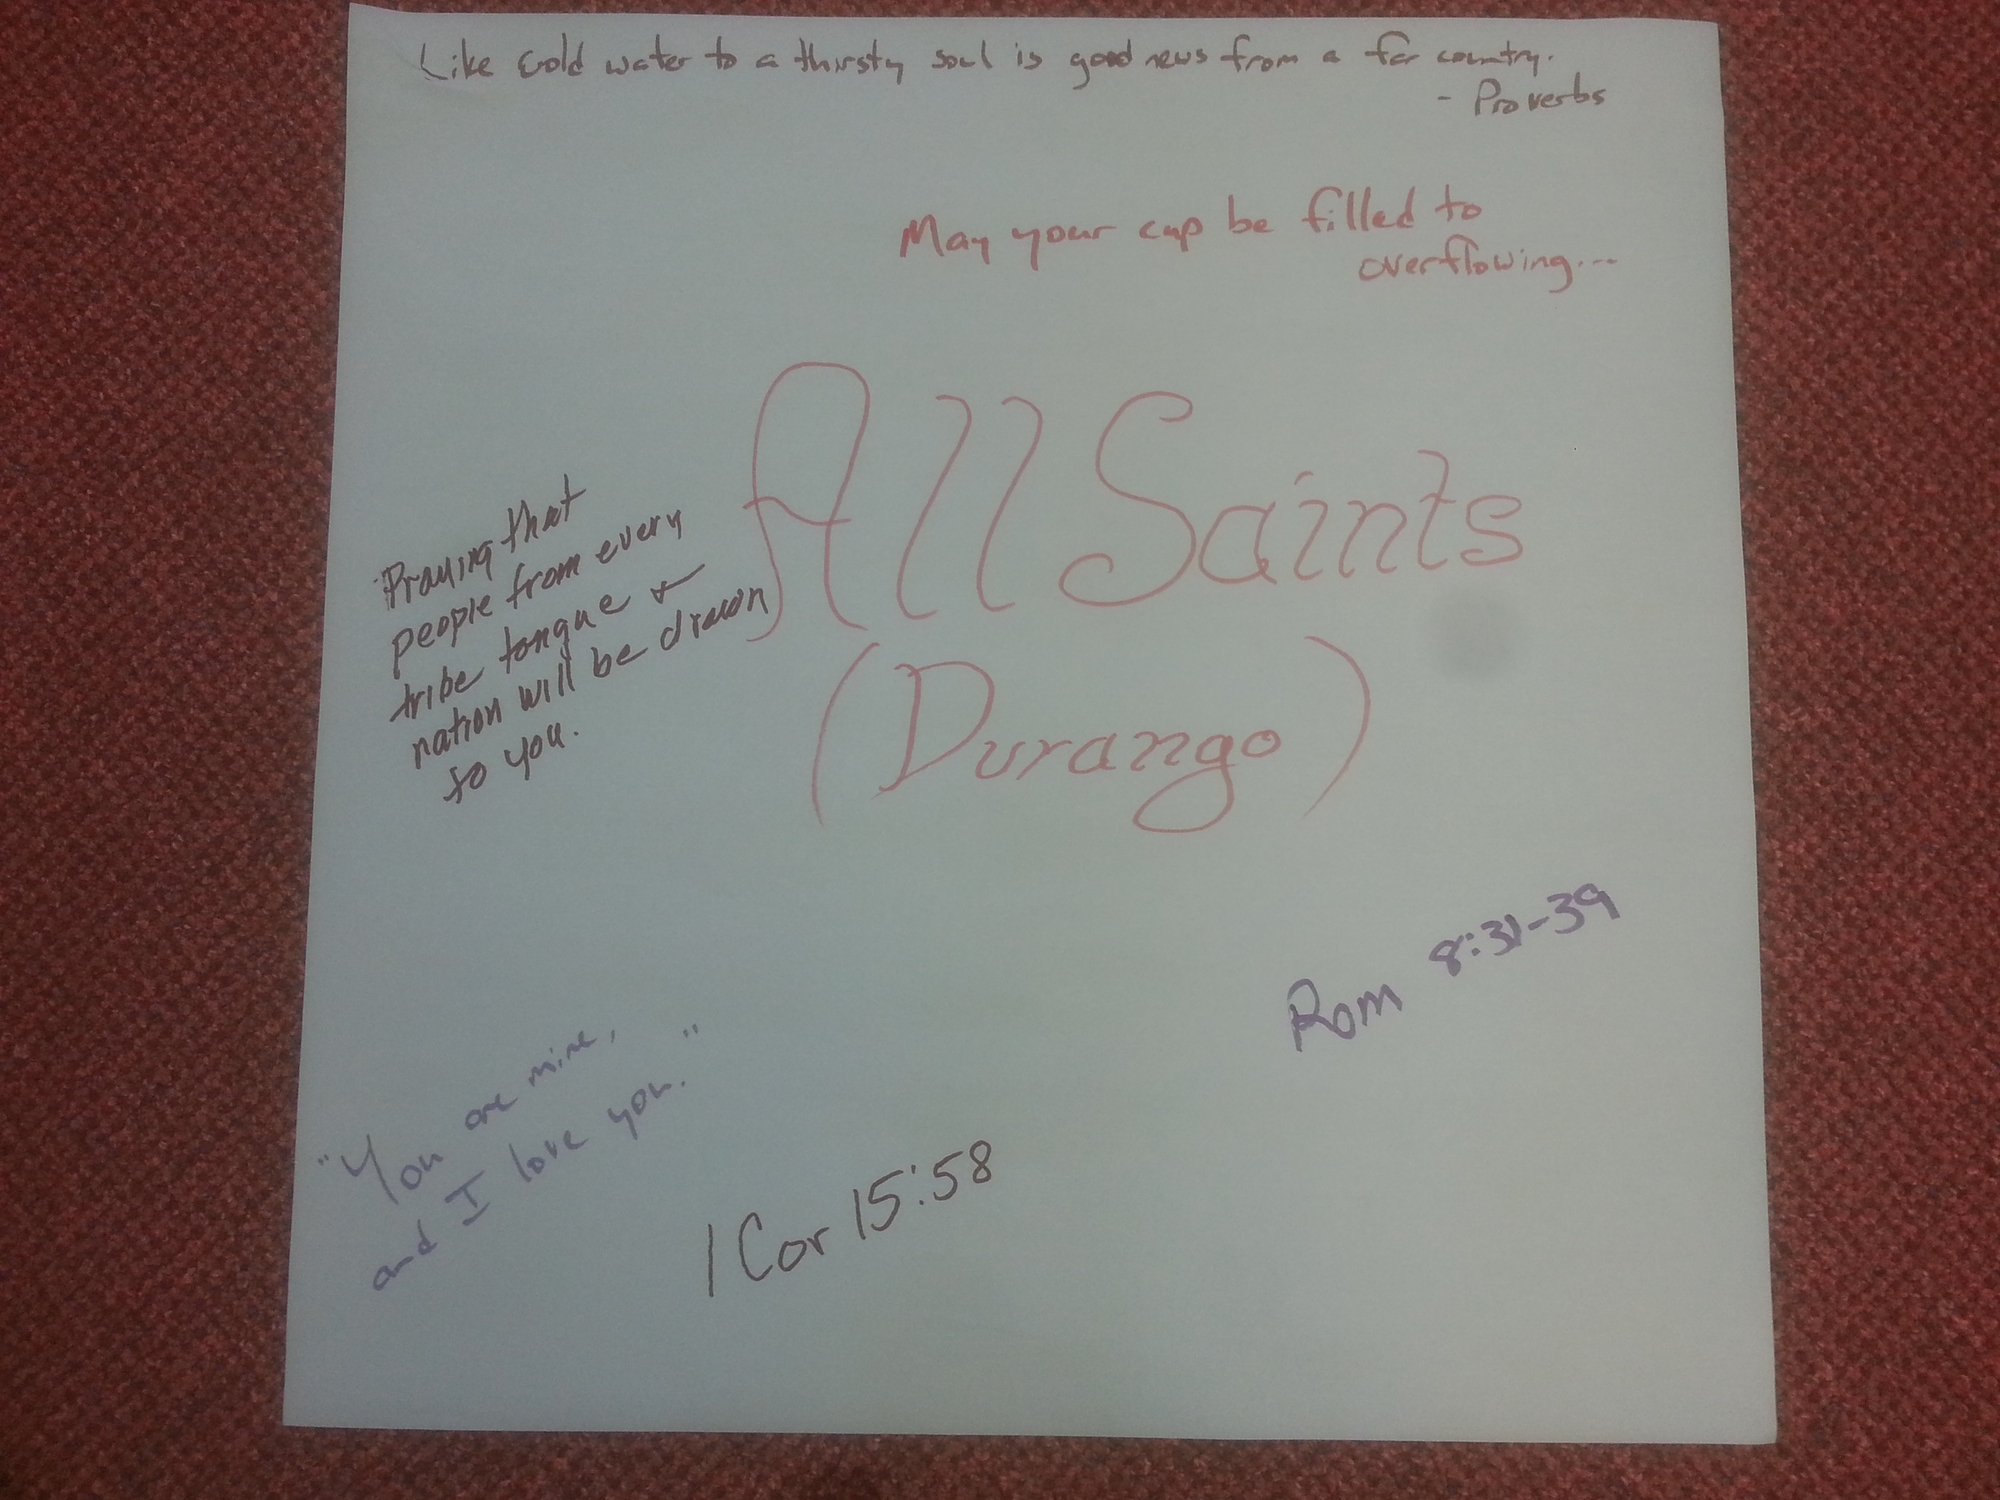 Like cold water to a thirsty soul is good news from a far country.
- Proverbs
May your cup be filled to
overflowing...
All Saints
(Durango)
Praying that
people from every
tribe tongue &
nation will be drawn
to you.
Rom 8:31-39
"You are mine,
and I love you."
1 Cor 15:58